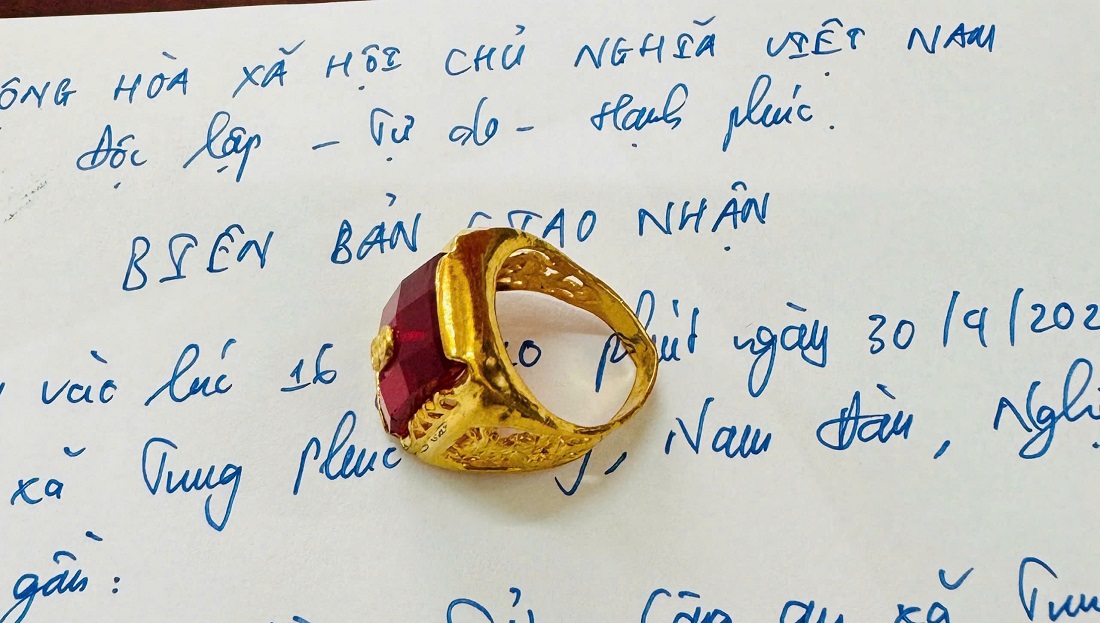 ÔNG HÒA XÃ HỘI CHỦ NGHĨA VIỆT NAM
Độc lập - Tự do - Hạnh phúc.
BIÊN BẢN GIAO NHẬN
vào lúc 16 phút ngày 30/9/202
xã Trung phúc Nam Đàn, Ngh
gồm:
Công an xã Trun